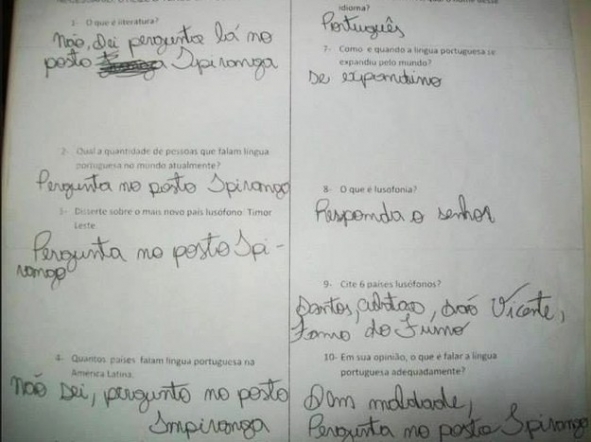 1- O que é literatura?
Não, Sei pergunta lá no
posto Ipiranga
2- Qual a quantidade de pessoas que falam língua
portuguesa no mundo atualmente?
Pergunta no posto Ipiranga
3- Disserte sobre o mais novo país lusófono: Timor
Leste.
Pergunta no posto Ipi-
ranga
4- Quantos países falam língua portuguesa na
América Latina.
Não Sei, pergunta no posto
Impiranga
idioma?
Português
7- Como e quando a língua portuguesa se
expandiu pelo mundo?
Se expandino
8- O que é lusofonia?
Responda o senhor
9- Cite 6 países lusófonos?
Santos, São Vicente,
10- Em sua opinião, o que é falar a língua
portuguesa adequadamente?
Sem maldade,
Pergunta no posto Ipiranga